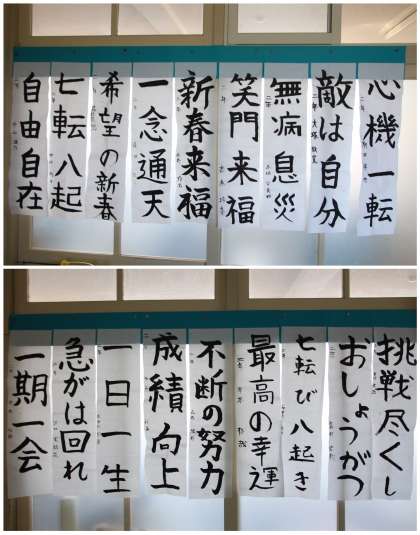 心機一転
敵は自分
無病息災
笑門来福
新春来福
一念通天
希望の新春
七転八起
自由自在
挑戦尽くし
おしょうがつ
七転び八起き
最高の幸運
不断の努力
成績向上
一日一生
急がは回れ
一期一会